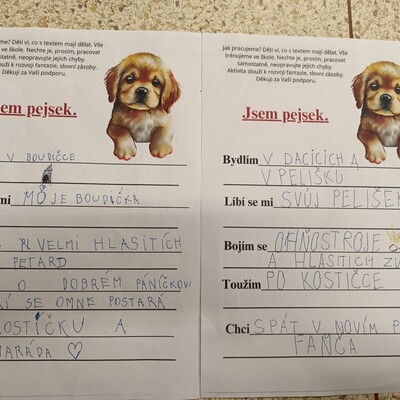 jeme? Děti ví, co s textem mají dělat. Vše
ve škole. Nechte je, prosím, pracovat
statně, neopravujte jejich chyby.
louží k rozvoji fantazie, slovní zásoby.
Děkuji za Vaši podporu.
sem pejsek.
V BOUDIČCE
mi MOJE BOUDIČKA
VELMI HLASITÍCH
PETARD
O DOBRÉM PÁNÍČKOVI
SE OMNE POSTARÁ
OSTIČKU A
MARÁDA ♡
Jak pracujeme? Děti ví, co s textem mají dělat. Vše
trénujeme ve škole. Nechte je, prosím, pracovat
samostatně, neopravujte jejich chyby.
Aktivita slouží k rozvoji fantazie, slovní zásoby.
Děkuji za Vaši podporu.
Jsem pejsek.
Bydlím V DAČICÍCH A
V PELÍŠKU
Líbí se mi SVŮJ PELÍŠEK
Bojím se OHŇOSTROJE
A HLASITÍCH ZV
Toužím PO KOSTIČCE
Chci SPÁT V NOVÍM P
FANČA